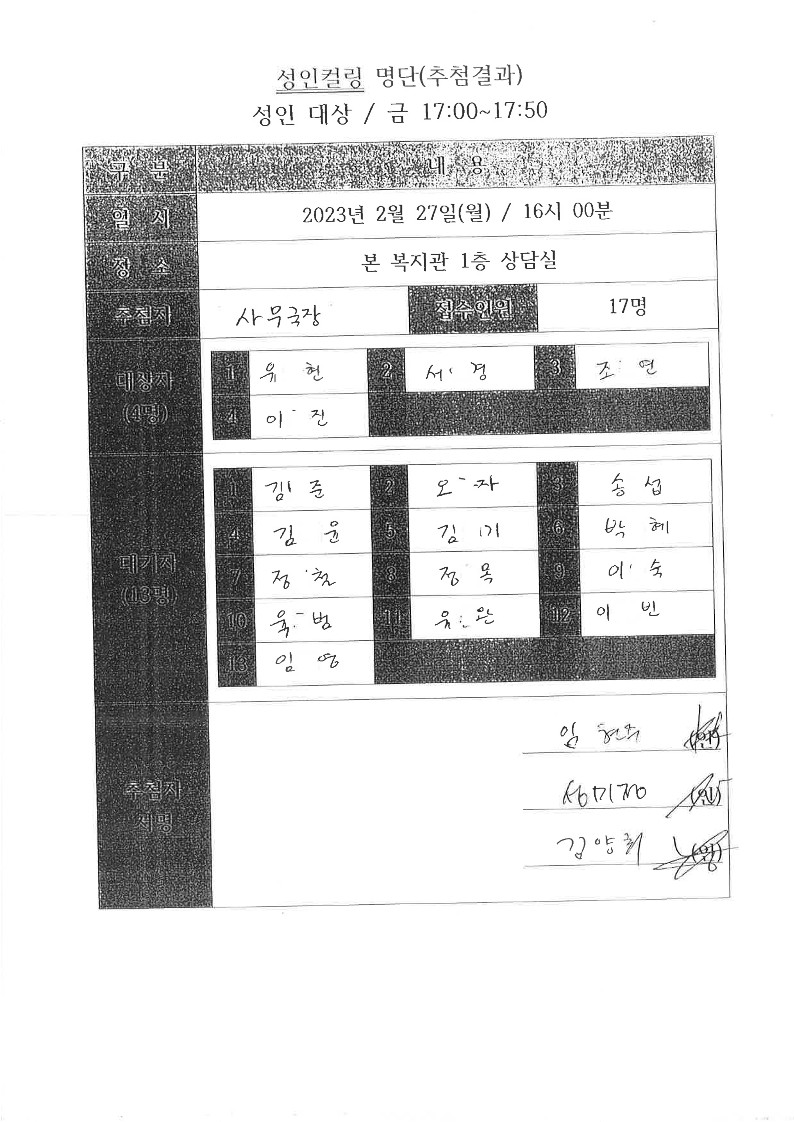 성인컬링 명단(추첨결과)
성인 대상 / 금 17:00~17:50
구 분 내 용
일 시 2023년 2월 27일(월) / 16시 00분
장 소 본 복지관 1층 상담실
추첨자 사무국장 접수인원 17명
대상자
(4명)
1 유 현 2 서 경 3 조 연
4 이 진
대기자
(13명)
1 김 준 2 오 자 3 송 섭
4 김 윤 5 김 기 6 박 혜
7 정 철 8 정 목 9 이 숙
10 육 범 11 유 완 12 이 빈
13 임 영
추첨자
서명
임 현주 (인)
성미정 (인)
김양희 (인)